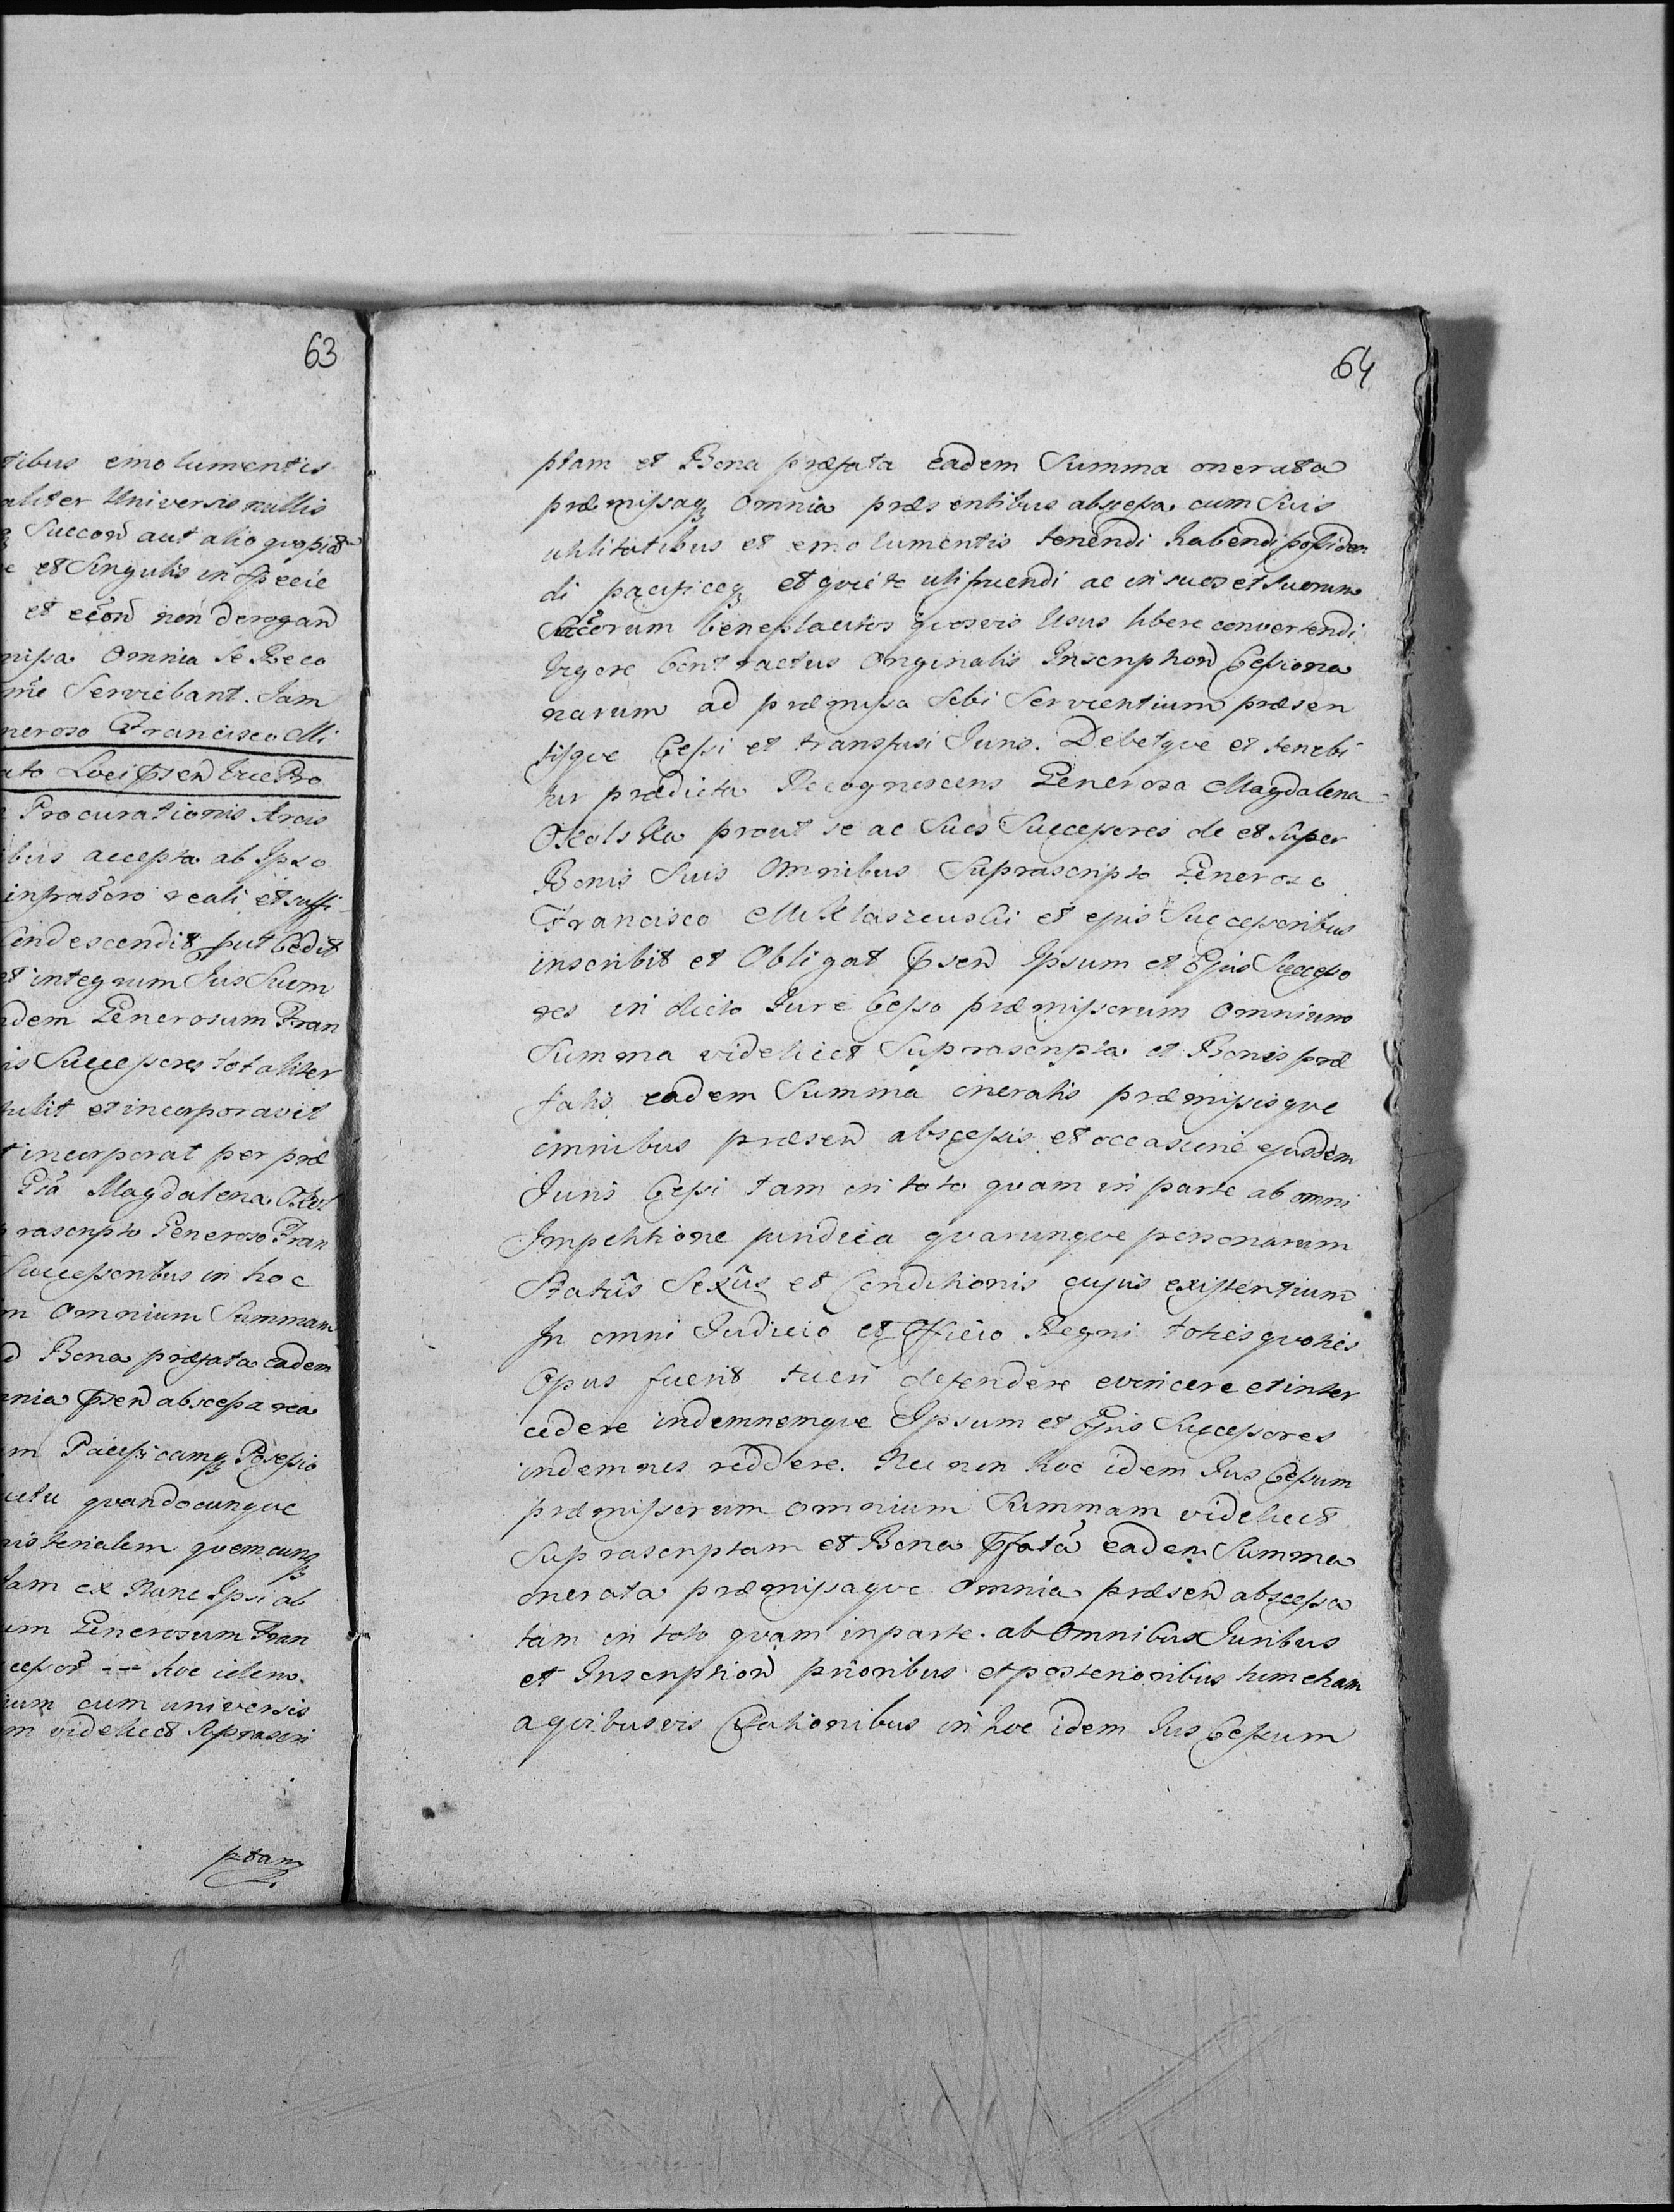 63
tibus emolumentis
aliter Universis nullis
Succoñ aut alio quopiã
et Singulis in Specie
et ecoñ non derogañ
missa Omnia Se Reco
me Serviebant. Jam
neroso Francisco Mi
ato Loci pseñ
Procurationis Arcis
bus accepta ab Ipso
infrasčro reali et suffi
Condescendit put Cedit
et integrum Jus Suum
dem Generosum Fran
is Successores totaliter
tulit et incorporavit
t incorporat per præ
Gsa Magdalena Okol
rascripto Generoso Fran
Successoribus in hoc
m Omnium Summam
d Bona præfata eadem
nia pseñ abscessa rea
m Pacificamq Posessio
quandocunque
nisterialem quemcunq
tam ex Nunc Ipsi ab
um Generosum Fran
cessoř hoc idem
ium cum universis
m videlicet Suprascri
ptam
64
ptam et Bona præfata eadem Summa onerata
præmissaq Omnia præsentibus abscessa cum Suis
utilitatibus et emolumentis tenendi habendi possiden
di pacificeq et quiete utifruendi ac in suos et Suorum
Succorum beneplacitos quosvis Usus libere convertendi
Vigore Contractus Originalis Inscriptioñ Cessiona
narum ad præmissa Sibi Servientium præsen
tisque Cessi et transfusi Juris. Debetque et tenebi
tur prædicta Recognoscens Generosa Magdalena
Okolska prout se ac Suos Successores de et super
Bonis Suis Omnibus Suprascripto Generoso
Francisco Miklaszewski et ejus Successoribus
inscribit et Obligat pseñ Ipsum et Ejus Successo
res in dicto Jure Cesso præmissorum Omnium
Summa videlicet Suprascripta et Bonis præ
fatis eadem Summa oneratis præmissisque
omnibus præseñ abscessis et occasione ejusdem
Juris Cessi tam in toto quam in parte ab omni
Impetitione juridica quarunque personarum
Statûs Sexûs et Conditionis cujus existentium
In omni Judicio et Officio Regni toties quoties
Opus fuerit tueri defendere evincere et inter
cedere indemnemque Ipsum et Ejus Successores
indemnes reddere. Nec non hoc idem Jus Cessum
præmissorum omnium Summam videlicet
Suprascriptam et Bona pfata eadem Summa
onerata præmissaque Omnia præseñ abscessa
tam in toto quam in parte ab Omnibus Juribus
et Inscriptioñ prioribus et posterioribus tum etiam
a quibusvis Citationibus in hoc idem Jus Cessum